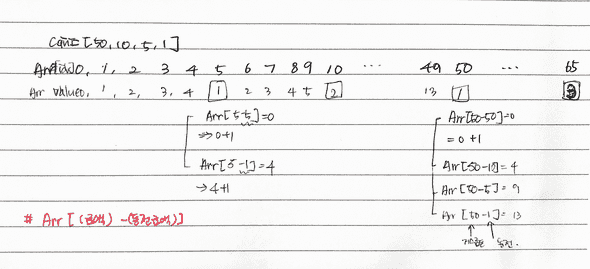 Coin = [50, 10, 5, 1]
Arr idx 0, 1, 2 3 4 5 6 7 8 9 10 ... 49 50 ... 65
Arr value 0, 1, 2, 3, 4 1 2 3 4 5 2 13 1 3
Arr[5-5]=0
⇒ 0+1
Arr[5-1]=4
→ 4+1
Arr[50-50]=0
= 0 +1
Arr[50-10]=4
Arr[50-5]=9
Arr[50-1]=13
동전.
# Arr[(금액)-(동전금액)]